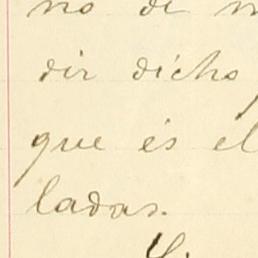 no de
dir dicho
que és el
ladas.